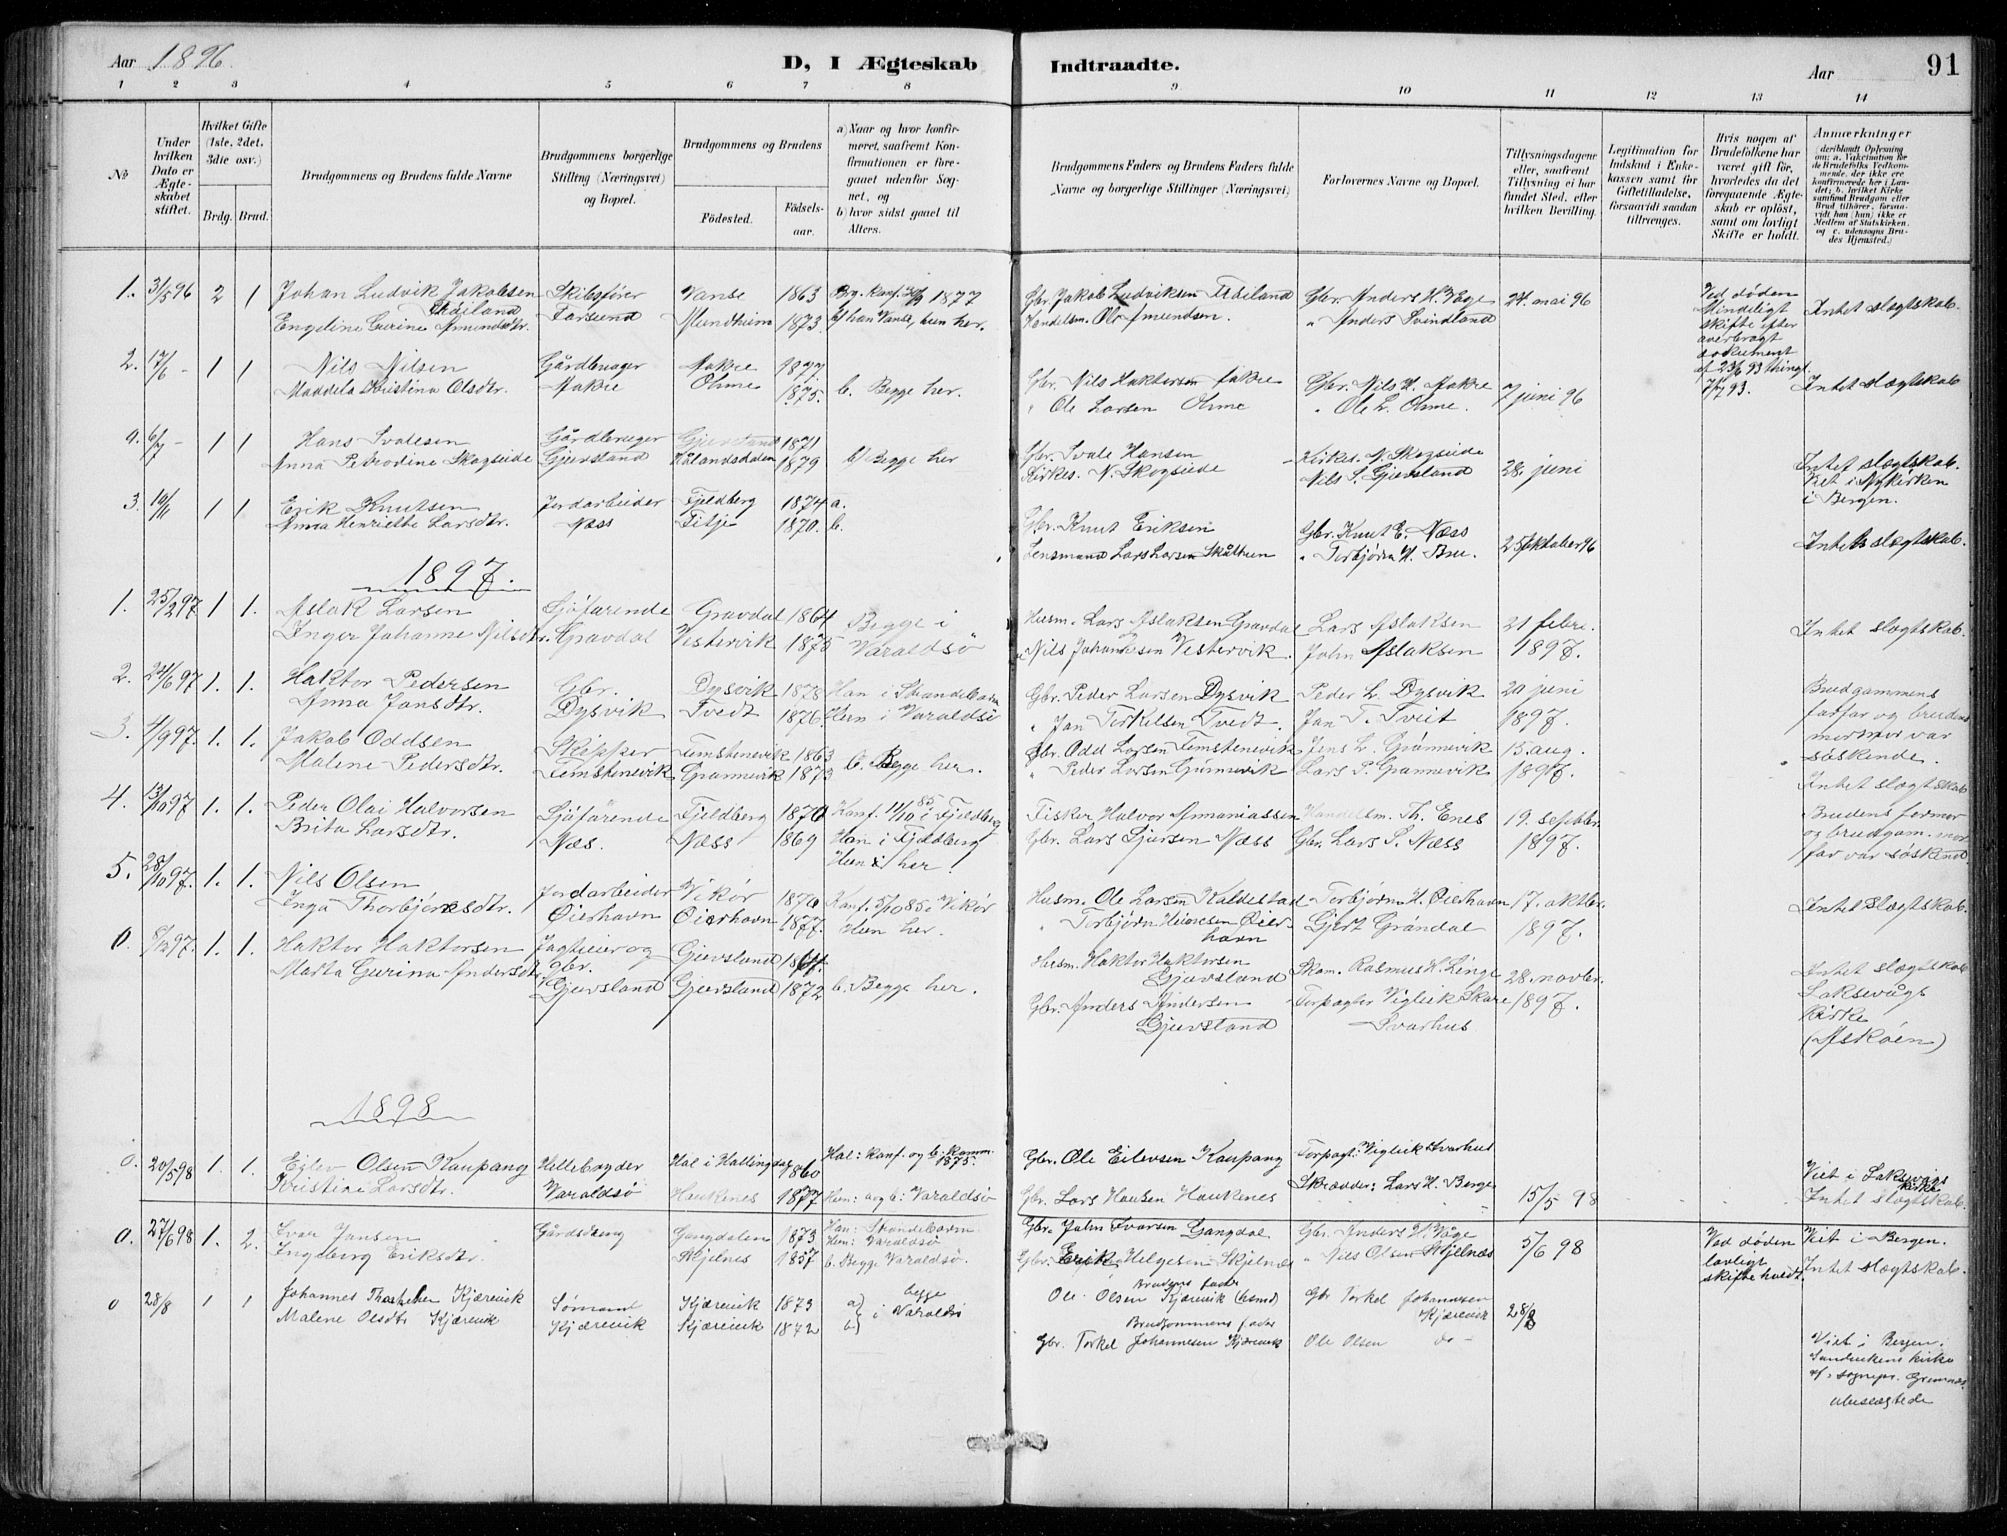 Aar 1896.
D, I Ægteskab Indtraadte.
Aar
91
1 2 3 4 5 6 7 8 9 10 11 12 13 14
No
Under hvilken Dato er Ægteskabet stiftet.
Hvilket Gifte (1ste, 2det, 3die osv.)
Brdg. Brud.
Brudgommens og Brudens fulde Navne
Brudgommens borgerlige Stilling (Næringsvei) og Bopæl.
Brudgommens og Brudens
Födested.
Födselsaar.
a) Naar og hvor konfirmeret, saafremt Konfirmationen er foregaaet udenfor Sognet, og
b) hvor sidst gaaet til Alters.
Brudgommens Faders og Brudens Faders fulde Navne og borgerlige Stillinger (Næringsvei)
Forlovernes Navne og Bopæl.
Tillysningsdagene eller, saafremt Tillysning ei har fundet Sted, efter hvilken Bevilling.
Legitimation for Indskud i Enkekassen samt for Giftetilladelse, forsaavidt saadan tiltrænges.
Hvis nogen af Brudefolkene har været gift för, hvorledes da det foregaaende Ægteskab er oplöst, samt om lovligt Skifte er holdt.
Anmærkninger (deriblandt Oplysning om: a. Vakcination for de Brudefolks Vedkommende, der ikke ere konfirmerede her i Landet; b. hvilket Kirkesamfund Brudgom eller Brud tilhører, forsaavidt han (hun) ikke er Medlem af Statskirken, og c. udensogns Brudes Hjemsted.)
1. 31/5 96 2 1 Johan Ludvik Jakobsen Skibsfører Vanse 1863 1877 Gbr. Jakob Ludviksen Gbr. Anders H. Våge 24. mai 96 Ved døden Intet slægtskab.
Engeline Gurine Amundsdtr. Farsund Mundheim 1873. b) han Vanse, hun her. Handelsm. Ole Amundsen. " Anders Svindland Mindeligt skifte efter
2. 17/6 - 1 1 Nils Nilsen Gårdbruger Aakre 1877 Gbr. Nils Haktorsen Aakre Gbr. Nils H. Aakre 7 juni 96 dokument af 23/6 93 Intet slægtskab
Maddela Kristina Olsdtr. Aakre Ohme 1875. b. Begge her. " Ole Larsen Ohme " Ole L. Ohme.
0. 6/7 - 1 1 Hans Svalesen Gårdbruger Gjevsland 1871 Gbr. Svale Hansen Kirkes. N. Skogseide 28. juni Intet slægtskab.
Anna Petrodine Skogseide Gjevsland Hålandsdalen 1879 b) Begge her Kirkes. N. Skogseide Nils S. Gjevsland Viet i Nykirken i Bergen.
3. 10/11 1 1 Erik Knutsen Jordarbeider Fjeldberg 1874 a. Gbr. Knut Eriksen Gbr. Knut E. Næss 25 oktober 96 Intet slægtskab.
Anna Henriette Larsdtr. Næss Fitje 1870. b. Lensmand Lars Larsen " Torbjørn H. Bru.
1897.
1. 25/2 97 1 1. Aslak Larsen Sjöfarende Gravdal 1864 Begge i Husm. Lars Aslaksen Gravdal Lars Aslaksen 21 febr. Intet slægtskab.
Inger Johanne Nilsdtr. Gravdal Vestervik 1875 Varaldsö " Nils Johannesen Vestervik. John Aslaksen 1897.
2. 24/6 97 1. 1. Haktor Pedersen Gbr. Dysvik 1878 Han i Strandebarm Gbr. Peder Larsen Dysvik Peder L. Dysvik 20 juni Brudgommens
Anna Jansdtr. Dysvik Tvedt 1876. Hun i Varaldsö " Jan Torkelsen Tvedt. Jan T. Tveit 1897. farfar og brudens mormor var søskende.
3. 4/9 97. 1. 1. Jakob Oddsen Skipper Femstenevik 1863 Gbr. Odd Larsen Femstenevik Jens L. Grönnevik 15. aug.
Malene Pedersdtr. Femstenevik Grønnevik 1873 b. Begge her. " Peder Larsen Grönnevik Lars P. Grønnevik 1897. Intet slægtskab
4. 13/10 97 1. 1. Peder Olai Halvorsen Sjöfarende Fjeldberg 1870 Konf. 11/10 85 i Fjeldberg Fisker Halvor Annaniassen Handelsm. Th. Enes 19. septbr. Brudens farmor
Brita Larsdtr. Næs. Næss 1869 Han i Fjeldberg Hun i her. Gbr. Lars Sjursen Næss Gbr. Lars S. Næss 1897. og brudgom. mor far var söskend
5. 28/10 97. 1. 1. Nils Olsen Jordarbeider Vikör 1870 Konf. 5/10 85 i Vikör Husm. Ole Larsen Kaldestad Torbjörn H. Öierhavn 17. oktbr. Intet slægtskab.
Inga Thorbjørnsdtr. Öierhavn Öierhavn 1877. Hun her. " Torbjörn Öierhavn Gjert Gröndal 1897.
0. 8/12 97. 1. 1. Haktor Haktorsen Jagteier og Gjevsland Husm. Haktor Haktorsen Gjevsland Skom. Rasmus H. Linge 28. novbr. Intet slægtskab
Marta Gurina Andersdtr. gbr. Gjevsland Gjevsland 1872 b. Begge her. Gbr. Anders Andersen Gjevsland Forpagter Vigleik Skare Svarhus 1897. Laksevågs kirke (Askøen)
1898
0. 20/5 98 1. 1. Eilev Olsen Kaupang Hellebryder Hol i Hallingdal 1860 Gbr. Ole Eilevsen Kaupang Forpagt: Vigleik Svarhus Viet i Laksevågs kirke
Kristine Larsdtr. Varaldsö Haukenes 1877 Hun: a og b: Varaldsö Gbr. Lars Hansen Haukenes Skrædder: Lars H. Berge 15/5 98 Intet slægtskab.
0. 27/6 98 1. 2. Ivar Jansen Gårdsdreng Gangdalen 1873 Han: Strandebarm Hun: Varaldsö Gbr. John Ivarsen Gangdal Gbr. Anders H. Våge 5/6 98 Ved døden Viet i Bergen.
Ingeborg Eriksdtr. Skjelnes 1857 b. Begge Varaldsö. Gbr. Erik Helgesen Skjelnæs " Nils Olsen Skjelnæs lovligt skifte holdt. Intet slægtskab.
0 28/8 1 1 Johannes Kjærevik Sømand Kjærevik 1873 a) b) begge i Varaldsö Brudens fader Ole Olsen Kjærevik (husmd) Gbr Torkel Johannesen Kjærevik 28/8
Malene Olsdtr Kjærevik Kjærevik Kjærevik 1872 Brudgommens fader Gbr. Torkel Johannesen Kjærevik Ole Olsen do - Viet i Bergen, Sandvikens kirke af sognepr. Ubeslægtede